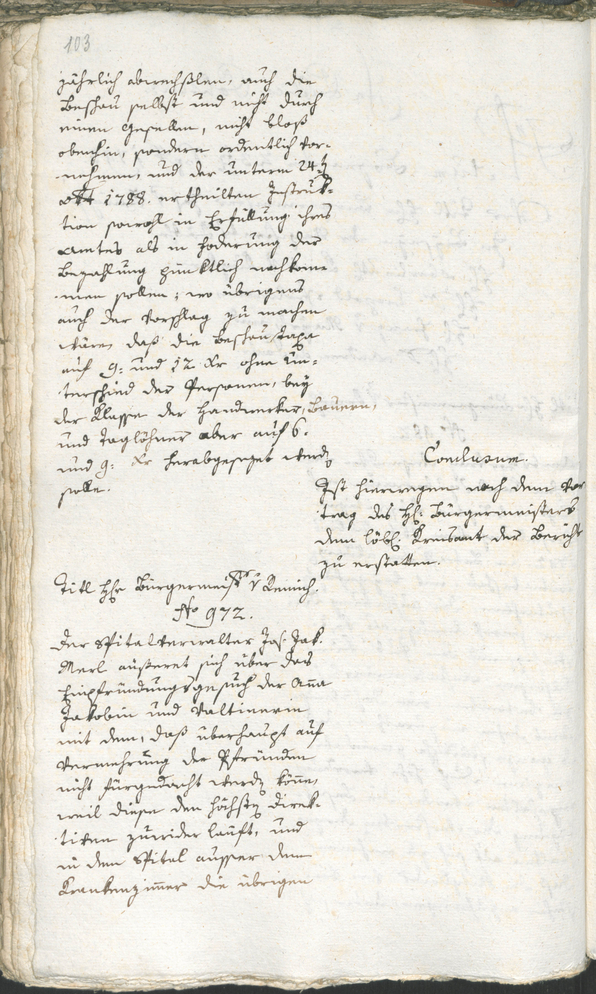 103
jährlich abwechslen, auch die
Beschau selbst und nicht durch
einen Gesellen, nicht bloß
obenhin, sondern ordentlich vor-
nehmen, und der unterm 24t
8bt 1788. ertheilten Instruk-
tion sowohl in Erfüllung ihres
Amtes als in Foderung der
Bezahlung pünktlich nachkom-
men sollen; wo übrigens
auch der Vorschlag zu machen
wäre, daß die Beschau taxa
auf 9: und 12 Xr ohne Un-
terschied der Personen, bey
der Klasse der Handwerker, Bauern,
und Taglöhner aber auf 6.
und 9: Xr herabgesezet werde
solle.
Conclusum.
Ist hierwegen nach dem Vor-
trag des H: Bürgermeisters
dem löbl: Kreisamt der Bericht
zu erstatten.
Titl Hr Bürgermeister v
No 972.
Der Spitalverwalter Jos: Jak:
Merl äußeret sich über das
Einpfründungsgesuch der Anna
Jakobin und Valtinerin
mit dem, daß überhaupt auf
Vermehrung der Pfründen
nicht fürgedacht werde könne,
weil diese den höchste Direk-
tiven zuwider lauft, und
in dem Spital ausser dem
Krankenzimmer die übrigen